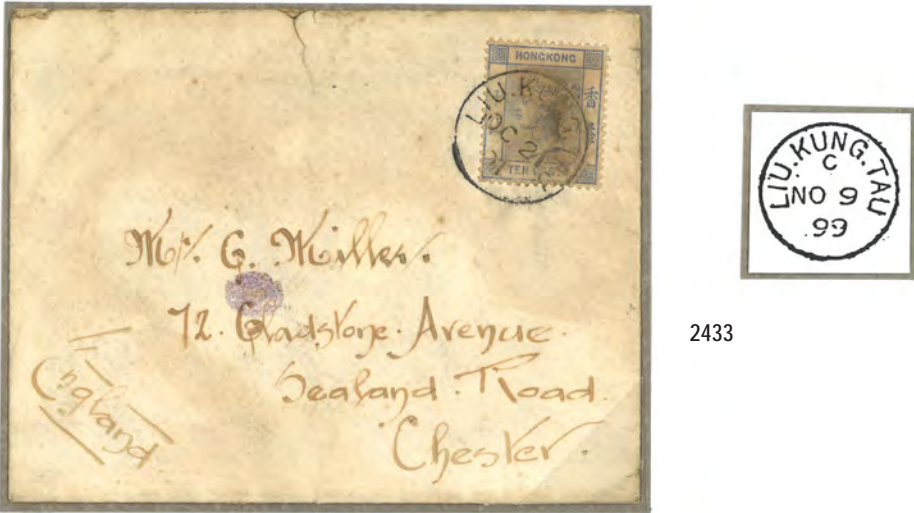 HONGKONG
LIU.KUNG
OC 2
TEN
Mr. G. Miller.
72. Gladstone. Avenue.
Sealand. Road.
Chester.
England
LIU.KUNG.TAU
C
NO 9
99
2433